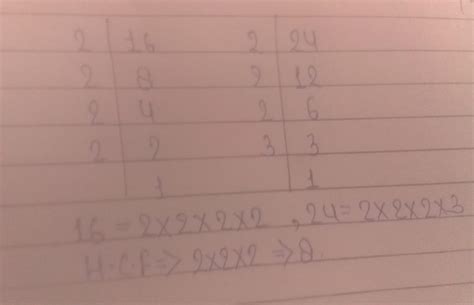 2 | 16 2 | 24
2 | 8 2 | 12
2 | 4 2 | 6
2 | 2 3 | 3
| 1 | 1
16 = 2×2×2×2 , 24 = 2×2×2×3
H.C.F => 2×2×2 => 8.